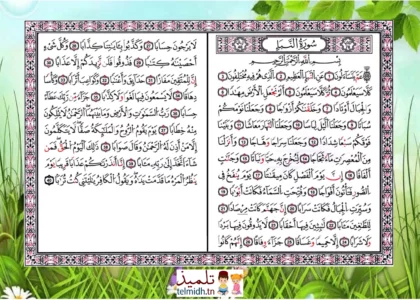 سورة النبإ
بسم الله الرحمن الرحيم
عم يتساءلون عن النبإ العظيم الذي هم فيه مختلفون
كلا سيعلمون ثم كلا سيعلمون ألم نجعل الأرض مهادا
والجبال أوتادا وخلقناكم أزواجا وجعلنا نومكم
سباتا وجعلنا الليل لباسا وجعلنا النهار معاشا وبنينا
فوقكم سبعا شدادا وجعلنا سراجا وهاجا وأنزلنا
من المعصرات ماء ثجاجا لنخرج به حبا ونباتا وجنات
ألفافا إن يوم الفصل كان ميقاتا يوم ينفخ في
الصور فتأتون أفواجا وفتحت السماء فكانت أبوابا
وسيرت الجبال فكانت سرابا إن جهنم كانت مرصادا
للطاغين مآبا لابثين فيها أحقابا لا يذوقون فيها بردا
ولا شرابا إلا حميما وغساقا جزاء وفاقا إنهم كانوا
لا يرجون حسابا وكذبوا بآياتنا كذابا وكل شيء
أحصيناه كتابا فذوقوا فلن نزيدكم إلا عذابا
إن للمتقين مفازا حدائق وأعنابا وكواعب أترابا وكأسا
دهاقا لا يسمعون فيها لغوا ولا كذابا جزاء من ربك عطاء
حسابا رب السماوات والأرض وما بينهما الرحمن لا يملكون
منه خطابا يوم يقوم الروح والملائكة صفا لا يتكلمون
إلا من أذن له الرحمن وقال صوابا ذلك اليوم الحق فمن
شاء اتخذ إلى ربه مآبا إنا أنذرناكم عذابا قريبا يوم
ينظر المرء ما قدمت يداه ويقول الكافر يا ليتني كنت ترابا
تلميذ
telmidh.tn